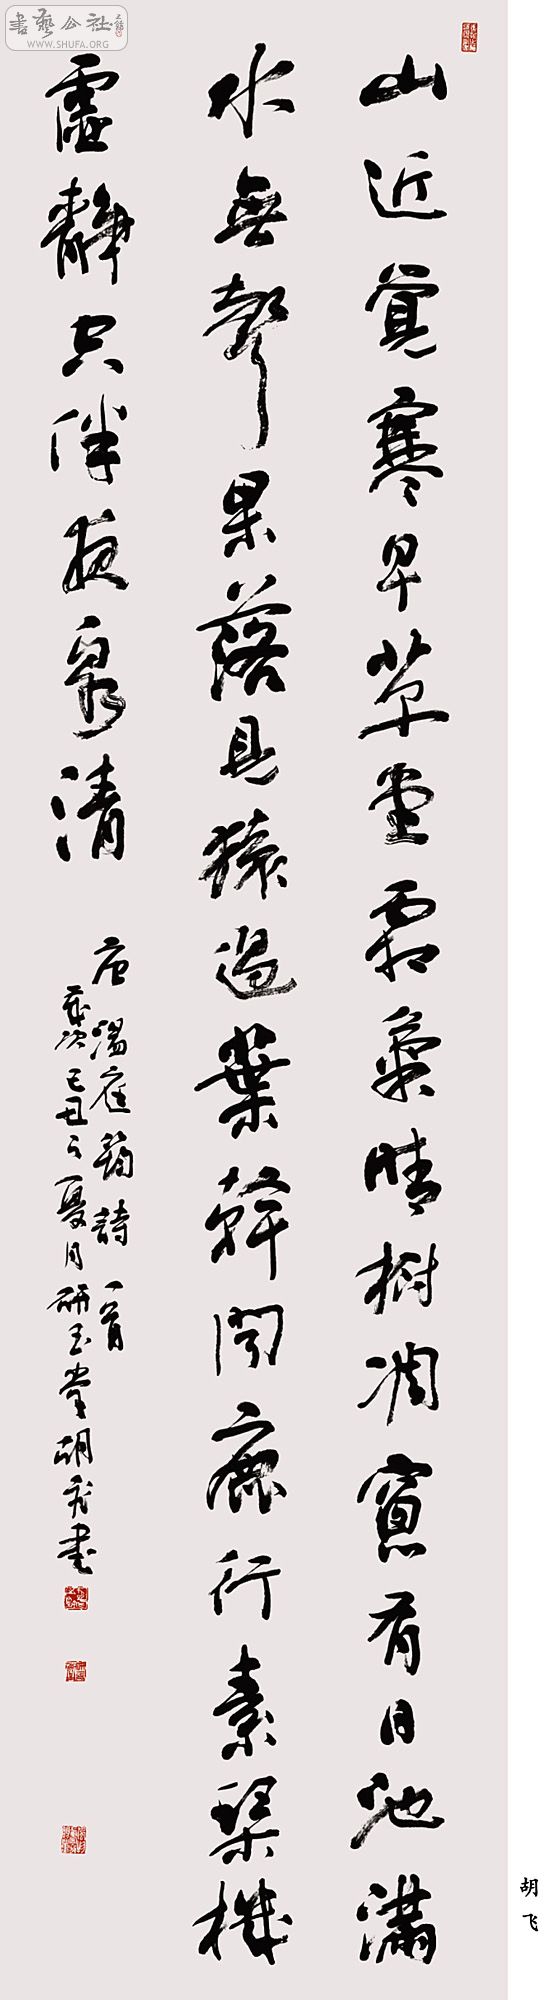 書藝公社
WWW.SHUFA.ORG
山近覺寒早草堂霜氣晴樹凋窻有日池滿
水無聲果落見猿過葉乾聞鹿行素琴機
慮靜空伴夜泉清
唐溫庭筠詩一首
歲次己丑之夏月研玉堂胡飛書
胡飞